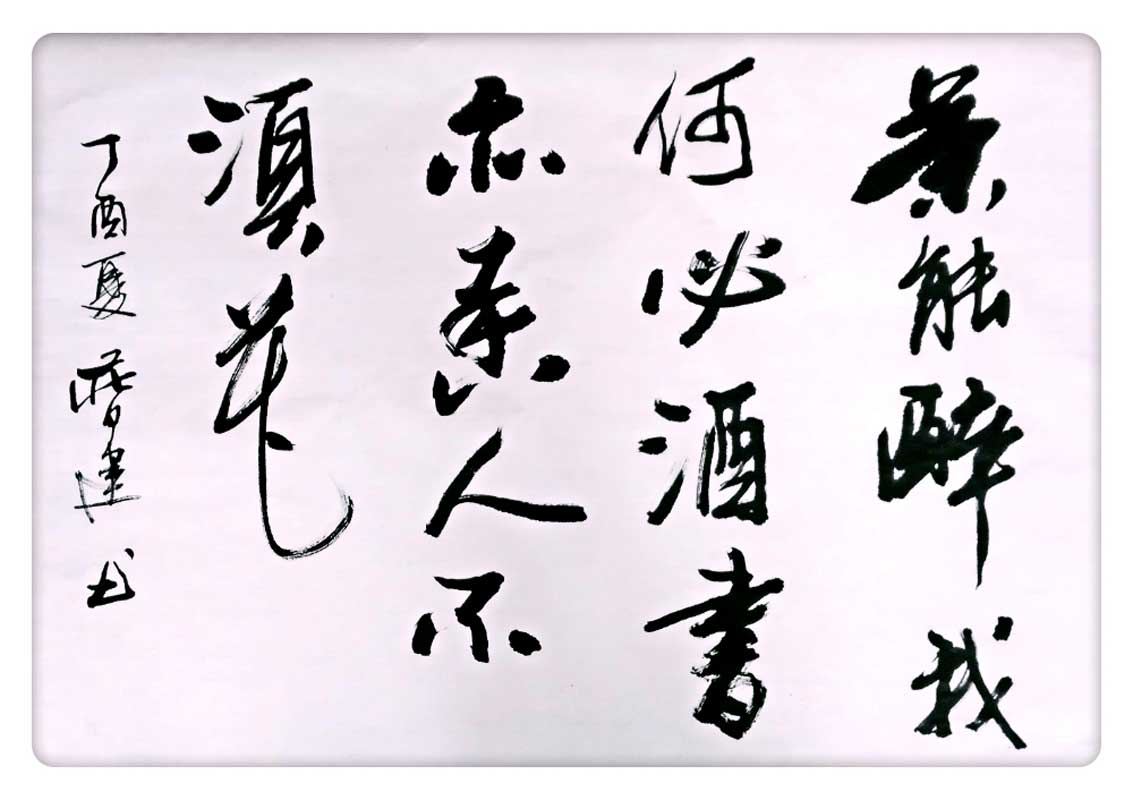 茶能醉我
何必酒書
亦香人不
須花
丁酉夏 建书